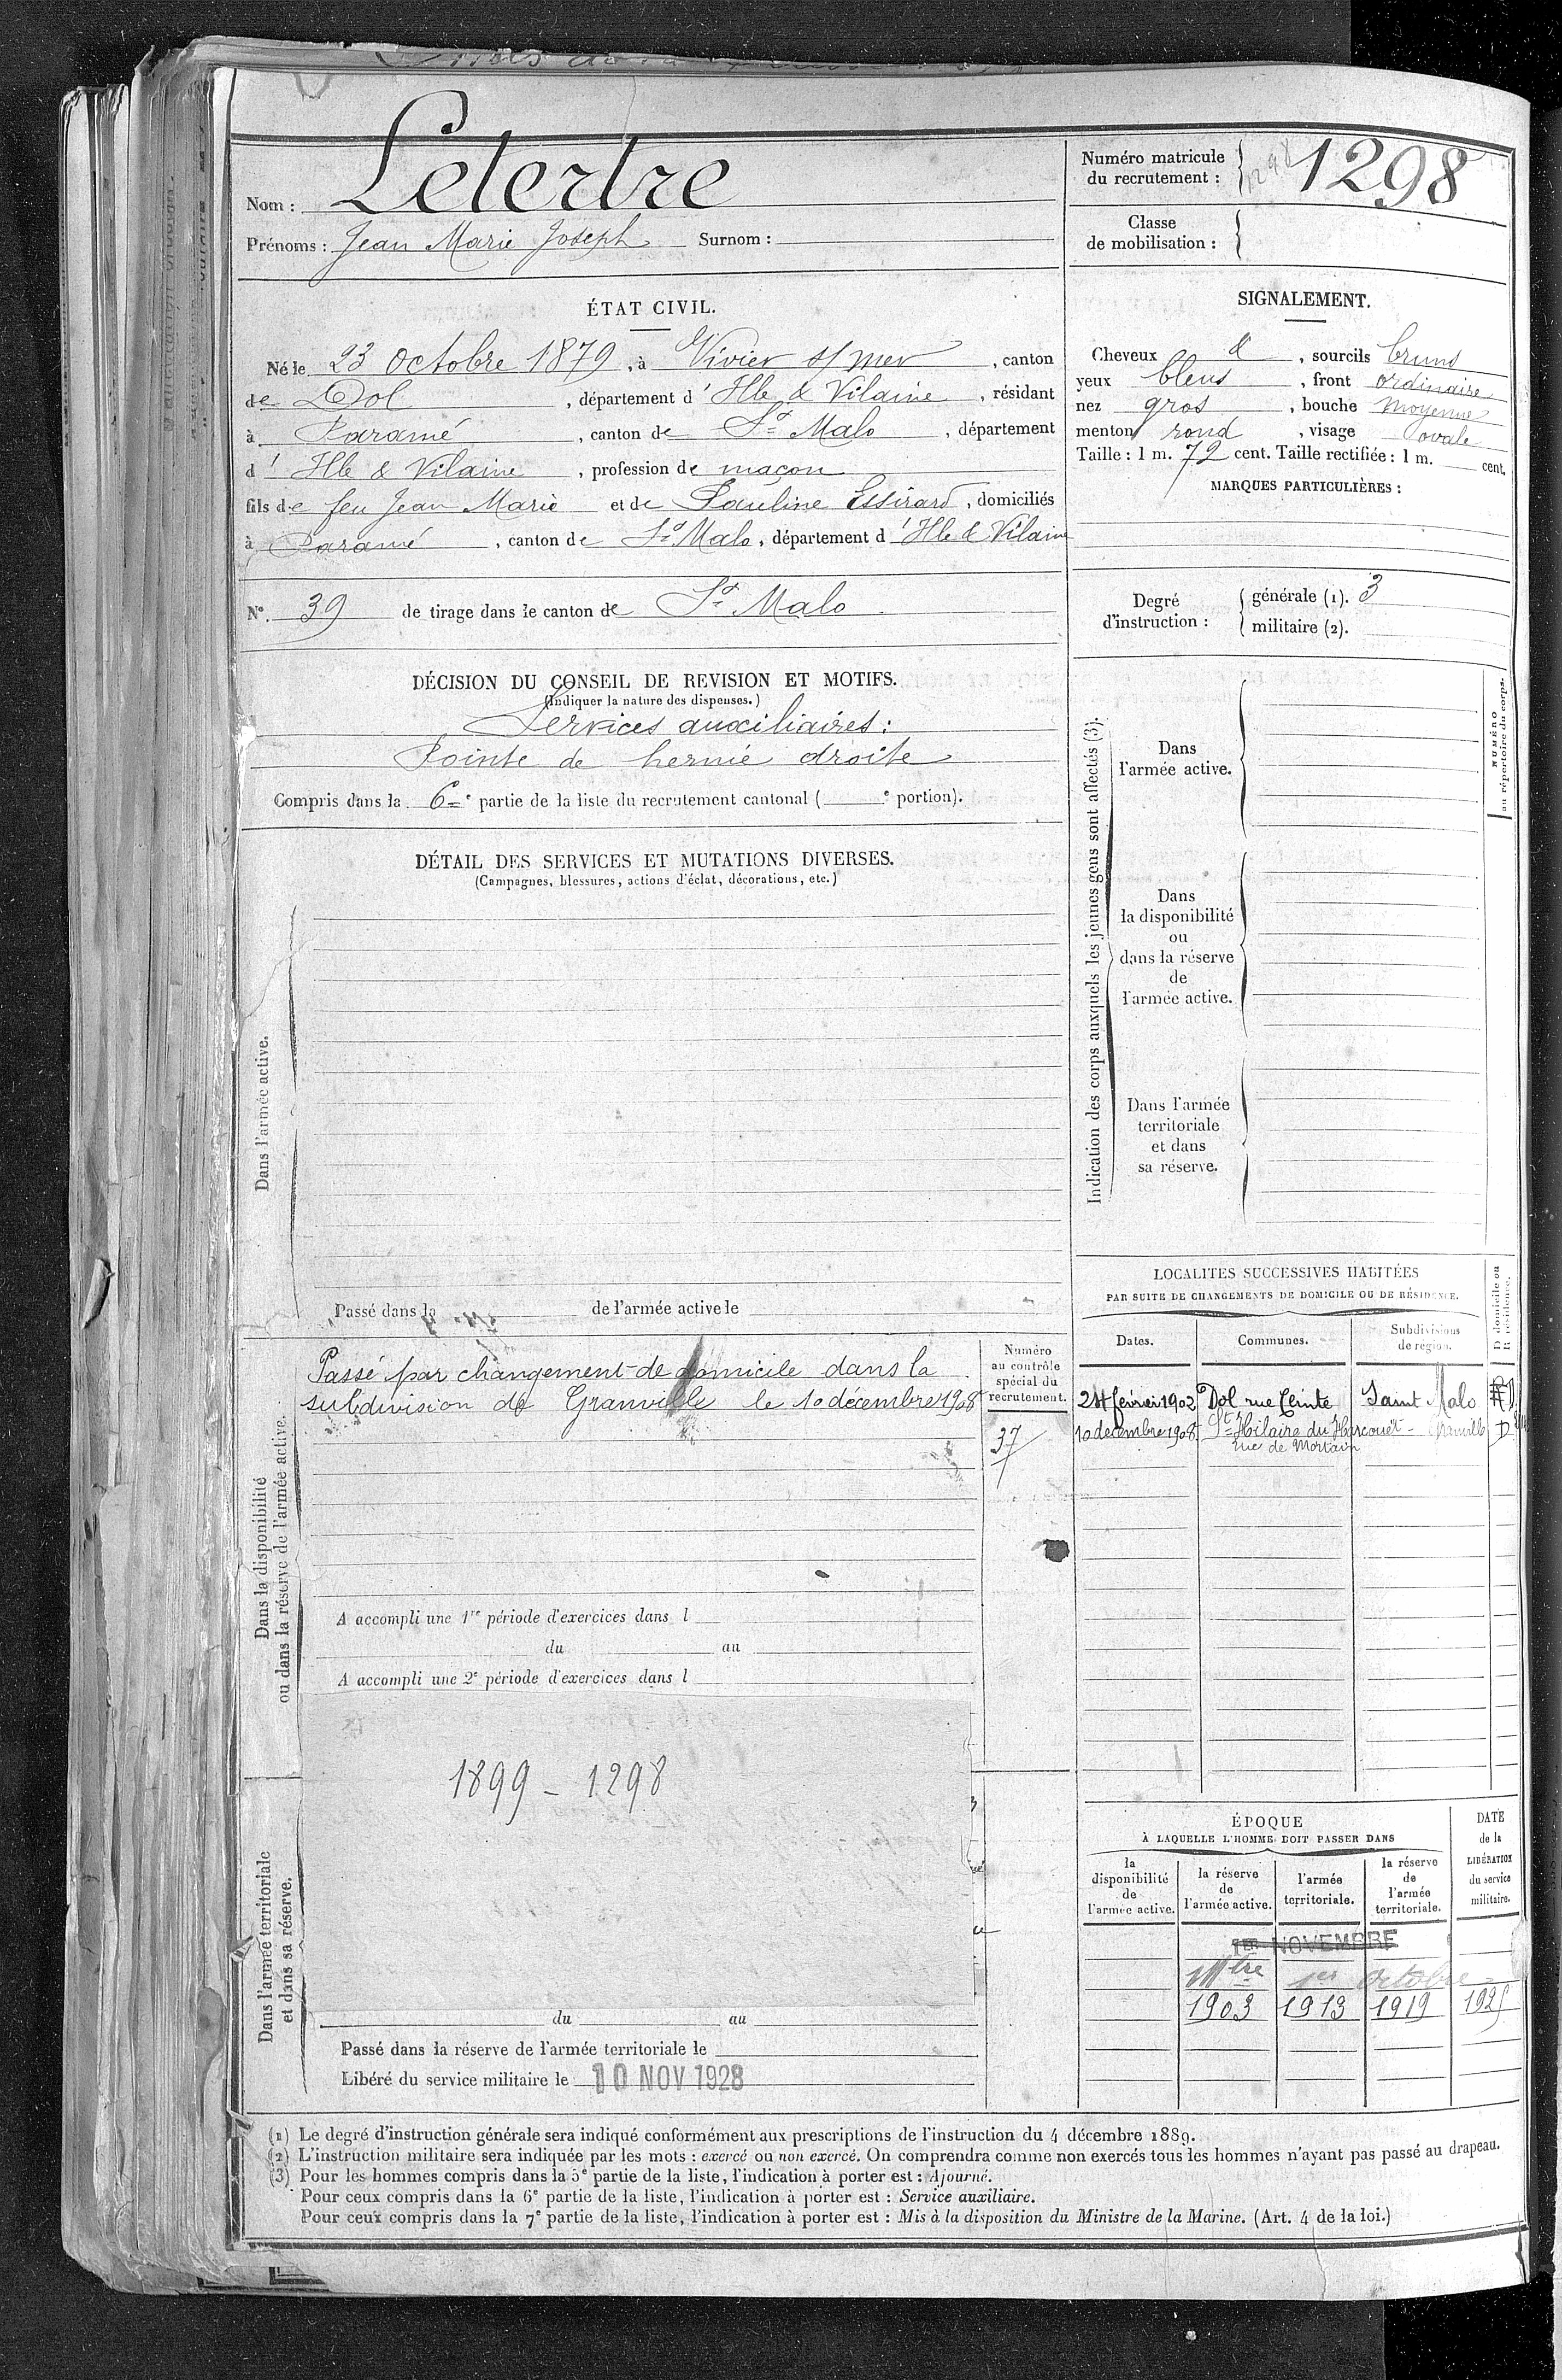 Nom : Letertre
Prénoms : Jean Marie Joseph Surnom :
Numéro matricule
du recrutement : 1298
Classe
de mobilisation :
ÉTAT CIVIL.
Né le 23 Octobre 1879, à Vivier s/ mer, canton
de Dol, département d'Ille & Vilaine, résidant
à Paramé, canton de St Malo, département
d'Ille & Vilaine, profession de maçon
fils de feu Jean Marie et de Pauline Essirard, domiciliés
à Paramé, canton de St Malo, département d'Ille & Vilaine
N° 39 de tirage dans le canton de St Malo
SIGNALEMENT.
Cheveux &, sourcils bruns
yeux bleus, front ordinaire
nez gros, bouche moyenne
menton rond, visage ovale
Taille : 1 m. 72 cent. Taille rectifiée : 1 m. cent.
MARQUES PARTICULIÈRES :
Degré
d'instruction :
générale (1). 3
militaire (2).
DÉCISION DU CONSEIL DE REVISION ET MOTIFS.
(Indiquer la nature des dispenses.)
Services auxiliaires :
Pointe de hernie droite
Compris dans la 6e partie de la liste du recrutement cantonal ( e portion).
DÉTAIL DES SERVICES ET MUTATIONS DIVERSES.
(Campagnes, blessures, actions d'éclat, décorations, etc.)
Dans l'armée active.
Passé dans la de l'armée active le
Indication des corps auxquels les jeunes gens sont affectés (3).
NUMÉRO
au répertoire du corps.
Dans
l'armée active.
Dans
la disponibilité
ou
dans la réserve
de
l'armée active.
Dans l'armée
territoriale
et dans
sa réserve.
Dans la disponibilité
ou dans la réserve de l'armée active.
Passé par changement de domicile dans la
subdivision de Granville le 10 décembre 1908
Numéro
au contrôle
spécial du
recrutement.
37
A accompli une 1re période d'exercices dans l
du au
A accompli une 2e période d'exercices dans l
1899 - 1298
LOCALITÉS SUCCESSIVES HABITÉES
PAR SUITE DE CHANGEMENTS DE DOMICILE OU DE RÉSIDENCE.
Dates. Communes. Subdivisions
de région.
D domicile ou
R résidence.
24 février 1902 Dol rue Ceinte Saint Malo
10 décembre 1908 St Hilaire du Harcouët - Granville D
rue de Mortain
ÉPOQUE
À LAQUELLE L'HOMME DOIT PASSER DANS
la
disponibilité
de
l'armée active.
la réserve
de
l'armée active.
l'armée
territoriale.
la réserve
de
l'armée
territoriale.
DATE
de la
LIBÉRATION
du service
militaire.
1ER NOVEMBRE
1er Octobre
1903 1913 1919 1925
Dans l'armée territoriale
et dans sa réserve.
du au
Passé dans la réserve de l'armée territoriale le
Libéré du service militaire le 10 NOV 1928
(1) Le degré d'instruction générale sera indiqué conformément aux prescriptions de l'instruction du 4 décembre 1889.
(2) L'instruction militaire sera indiquée par les mots : exercé ou non exercé. On comprendra comme non exercés tous les hommes n'ayant pas passé au drapeau.
(3) Pour les hommes compris dans la 5e partie de la liste, l'indication à porter est : Ajourné.
Pour ceux compris dans la 6e partie de la liste, l'indication à porter est : Service auxiliaire.
Pour ceux compris dans la 7e partie de la liste, l'indication à porter est : Mis à la disposition du Ministre de la Marine. (Art. 4 de la loi.)